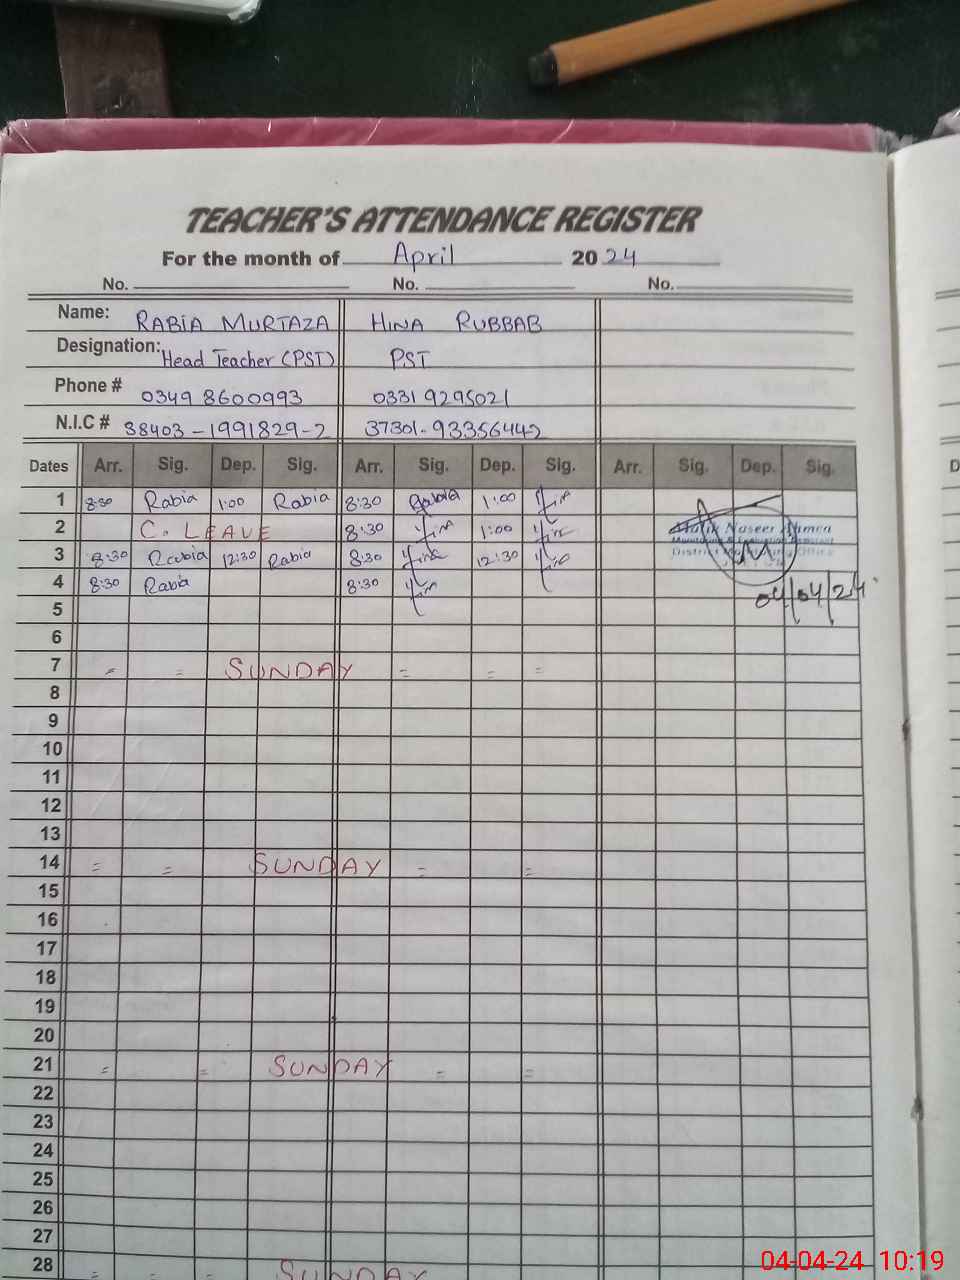 TEACHER'S ATTENDANCE REGISTER
For the month of April 2024
No. No. No.
Name: RABIA MURTAZA HINA RUBBAB
Designation: Head Teacher (PST) PST
Phone # 0349 8600993 0331 9295021
N.I.C # 38403-1991829-2 37301-93356442
Dates Arr. Sig. Dep. Sig. Arr. Sig. Dep. Sig. Arr. Sig. Dep. Sig.
1 8:30 Rabia 1:00 Rabia 8:30 1:00
2 C. LEAVE 8:30 1:00 Malik Naseer Ahmed
Monitoring & Evaluation Assistant
3 8:30 Rabia 12:30 Rabia 8:30 12:30 District Monitoring Office
4 8:30 Rabia 8:30 04/04/24
5
6
7 SUNDAY
8
9
10
11
12
13
14 SUNDAY
15
16
17
18
19
20
21 SUNDAY
22
23
24
25
26
27
28 SUNDAY
04-04-24 10:19